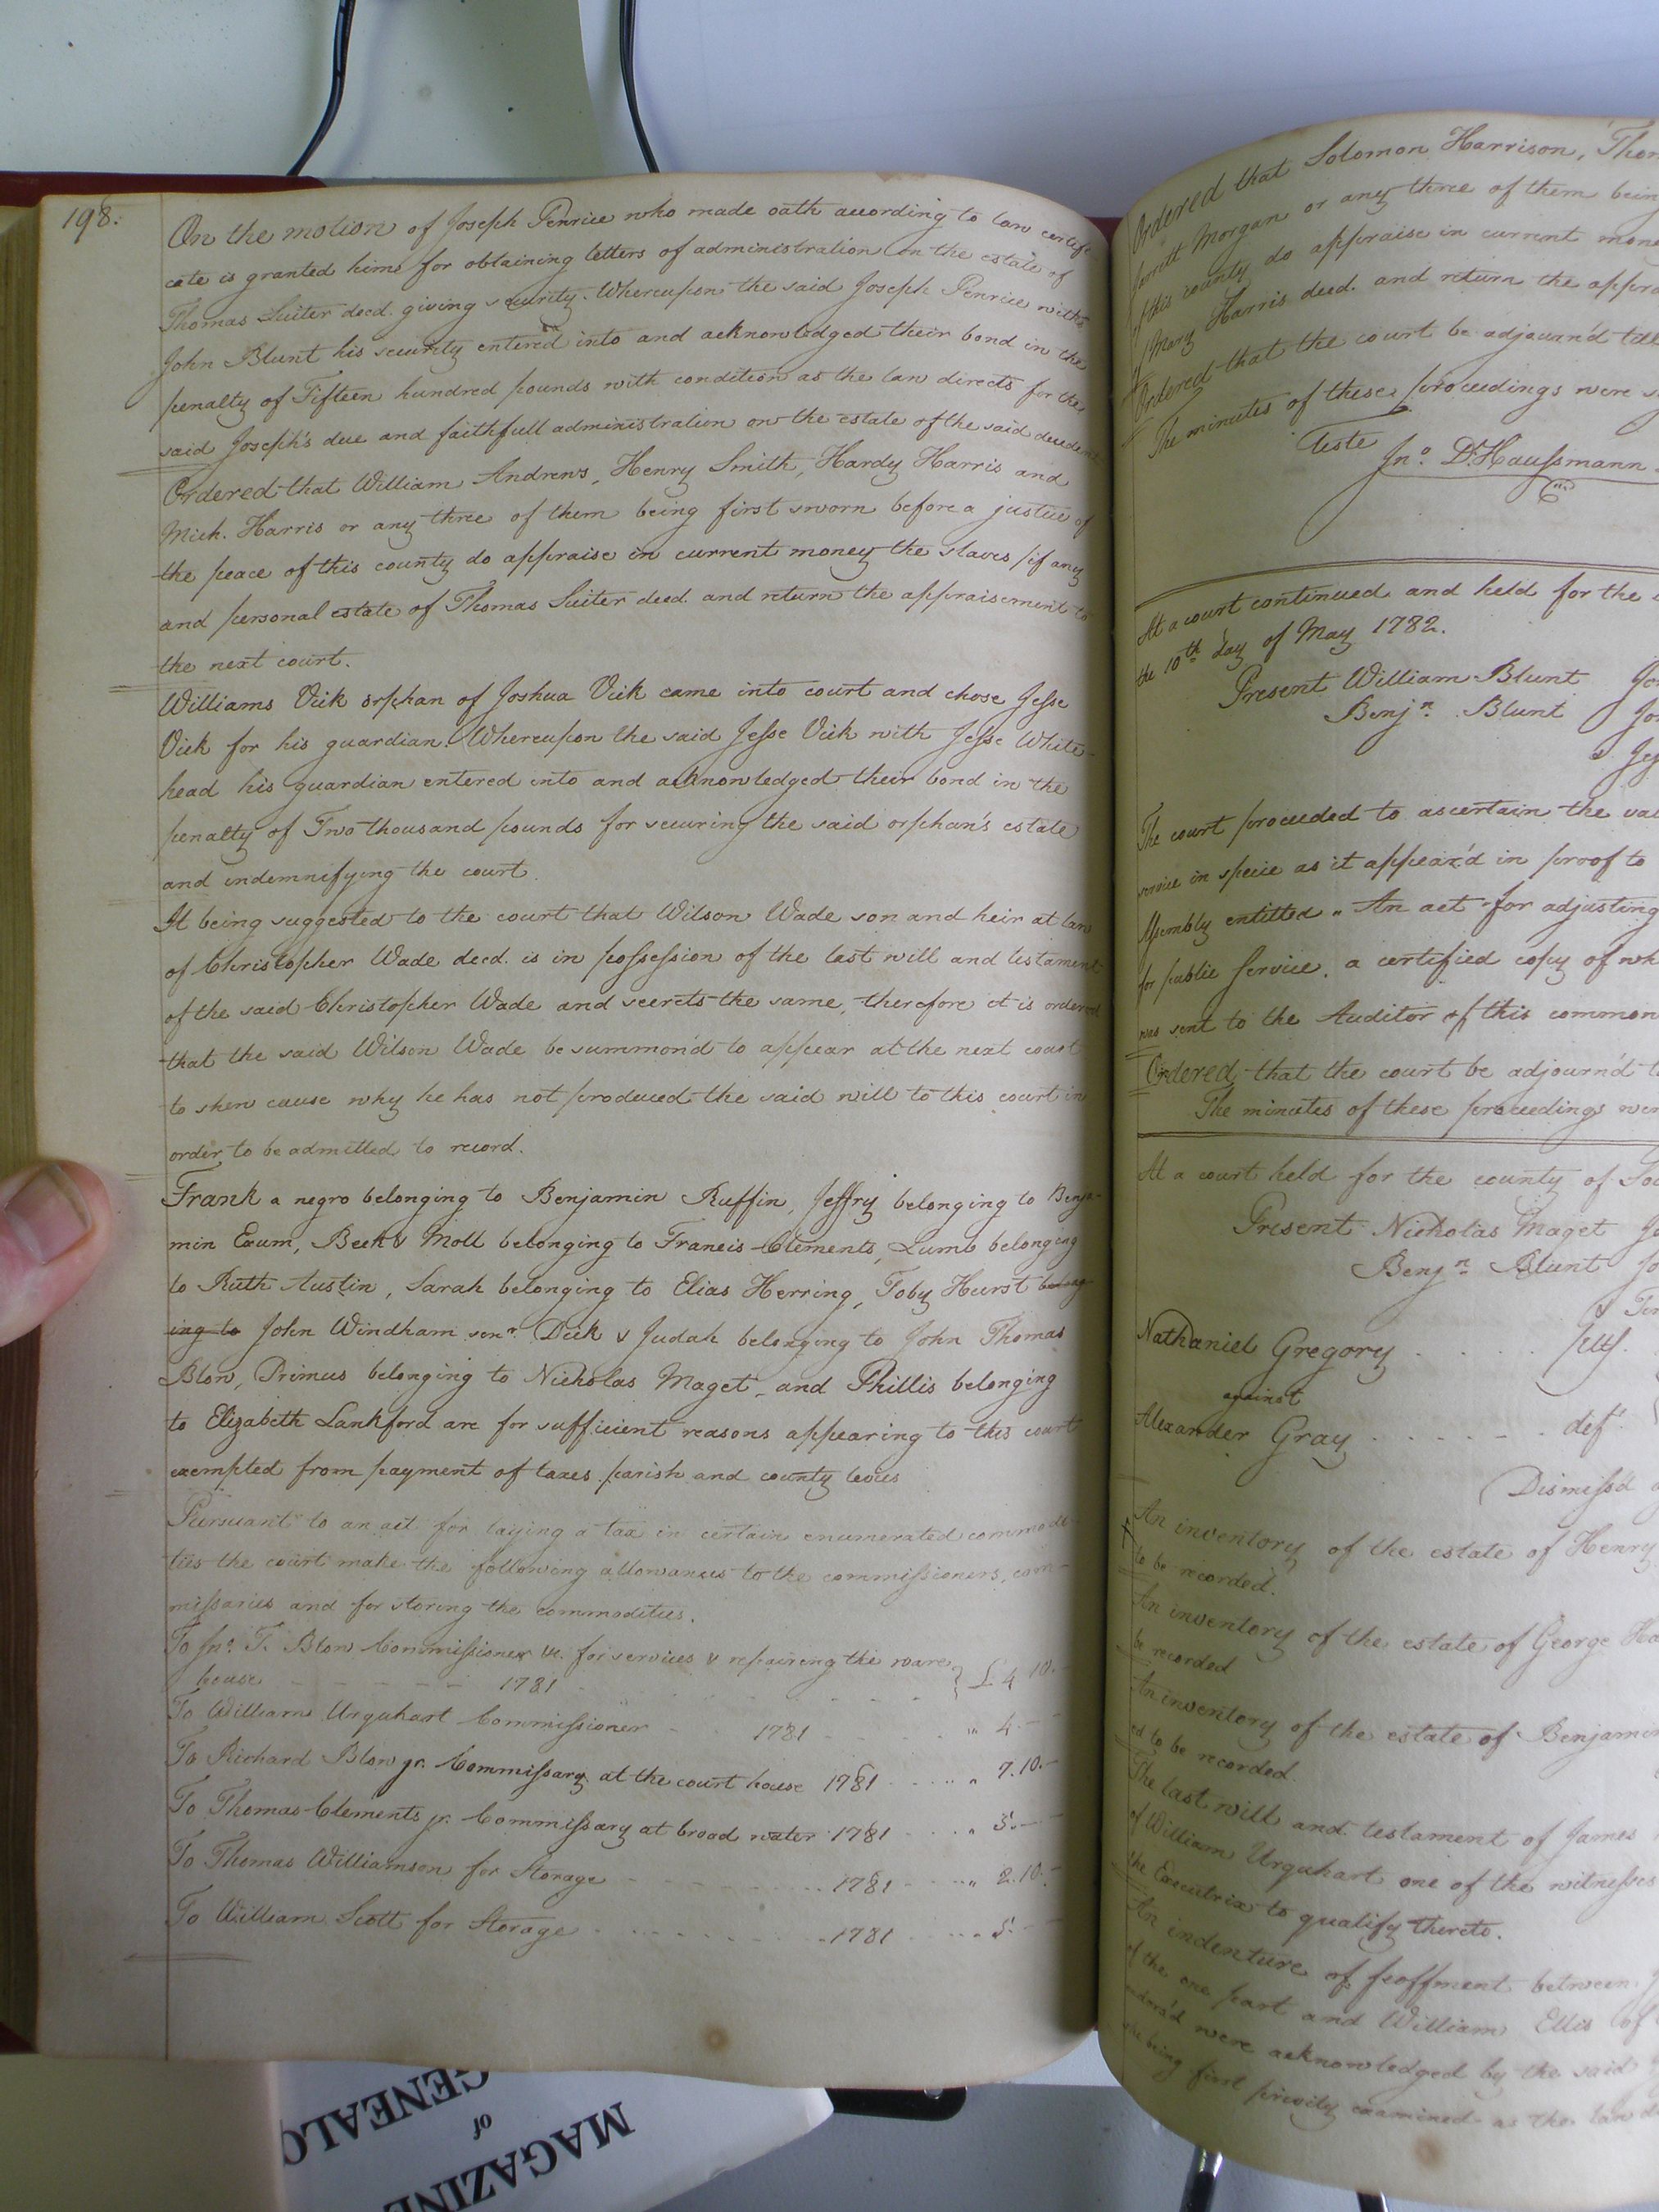 198.
On the motion of Joseph Penrice who made oath according to law certifi-
cate is granted him for obtaining letters of administration on the estate of
Thomas Suiter decd. giving security. Whereupon the said Joseph Penrice with
John Blunt his security entered into and acknowledged their bond in the
penalty of Fifteen hundred pounds with condition as the law directs for the
said Joseph's due and faithfull administration on the estate of the said decedent
Ordered that William Andrews, Henry Smith, Hardy Harris and
Mich. Harris or any three of them being first sworn before a justice of
the peace of this county do appraise in current money the slaves /if any
and personal estate of Thomas Suiter decd. and return the appraisement to
the next court.
Williams Vick orphan of Joshua Vick came into court and chose Jesse
Vick for his guardian. Whereupon the said Jesse Vick with Jesse White-
head his guardian entered into and acknowledged their bond in the
penalty of Two thousand pounds for securing the said orphan's estate
and indemnifying the court.
It being suggested to the court that Wilson Wade son and heir at law
of Christopher Wade decd. is in possession of the last will and testament
of the said Christopher Wade and secrets the same, therefore it is ordered
that the said Wilson Wade be summon'd to appear at the next court
to shew cause why he has not produced the said will to this court in
order to be admitted to record.
Frank a negro belonging to Benjamin Ruffin, Jeffry belonging to Benja-
min Exum, Beck & Moll belonging to Francis Clements, Lumb belonging
to Ruth Austin, Sarah belonging to Elias Herring, Toby Hurst belong-
ing to John Windham senr. Dick & Judah belonging to John Thomas
Blow, Primus belonging to Nicholas Maget, and Phillis belonging
to Elizabeth Lankford are for sufficient reasons appearing to this court
exempted from payment of taxes parish and county levies
Pursuant to an act for laying a tax in certain enumerated commodi-
ties the court make the following allowances to the commissioners, com-
missaries and for storing the commodities.
To Jno. T. Blow Commissioner &c. for services & repairing the ware
house 1781 £ 4 10.-
To William Urquhart Commissioner 1781 " 4.--
To Richard Blow jr. Commissary at the court house 1781 " 7.10.-
To Thomas Clements jr. Commissary at broad water 1781 " 5.--
To Thomas Williamson for Storage 1781 " 2.10.-
To William Scott for Storage 1781 " 5.--
Ordered that Solomon Harrison, Thom
Morgan or any three of them being
of this county do appraise in current mone
Mary Harris decd. and return the appra
Ordered that the court be adjourn'd till
The minutes of these proceedings were
Teste
Jno. D. Haussmann
At a court continued and held for the
the 10th day of May 1782.
Present William Blunt
Benjn. Blunt
The court proceeded to ascertain the val
service in specie as it appear'd in proof to
Assembly entitled "An act for adjusting
for public service, a certified copy of wh
was sent to the Auditor of this common
Ordered that the court be adjourn'd t
The minutes of these proceedings wer
At a court held for the county of Sou
Present Nicholas Maget
Benjn. Blunt
Nathaniel Gregory plf.
against
Alexander Gray deft.
Dismiss'd
An inventory of the estate of Henry
to be recorded.
An inventory of the estate of George Ha
be recorded
An inventory of the estate of Benjamin
ed to be recorded.
The last will and testament of James
of William Urquhart one of the witnesses
the Executrix to qualify thereto.
An indenture of feoffment between J
of the one part and William Ellis of
endors'd were acknowledged by the said
she being first privily examined as the law d
MAGAZINE
of
GENEALO